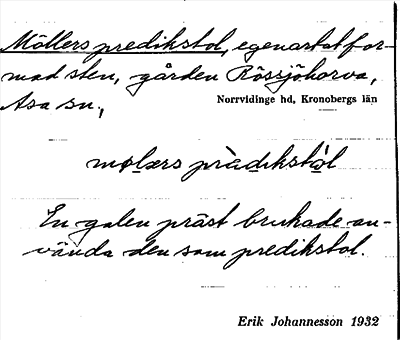 Möllers predikstol, egenartat for-
mad sten, gården Rössjöhorva,
Asa sn.,
Norrvidinge hd, Kronobergs län
mølærs prèdikstól
En galen präst brukade an-
vända den som predikstol.
Erik Johannesson 1932